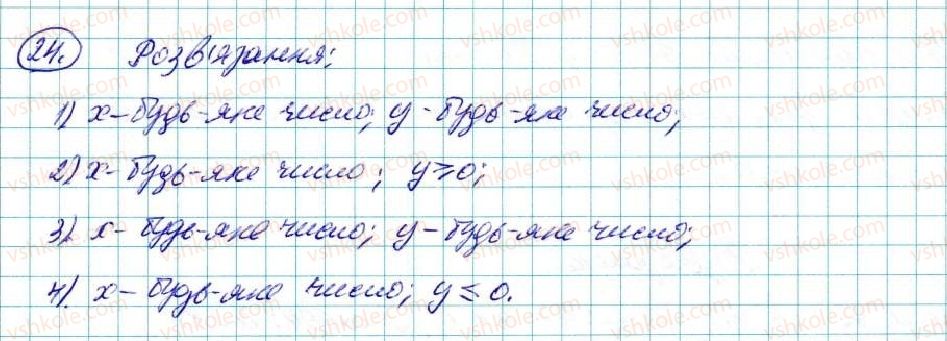 24. Розв'язання:
1) x - будь-яке число; y - будь-яке число;
2) x - будь-яке число; y ≥ 0;
3) x - будь-яке число; y - будь-яке число;
4) x - будь-яке число; y ≤ 0.